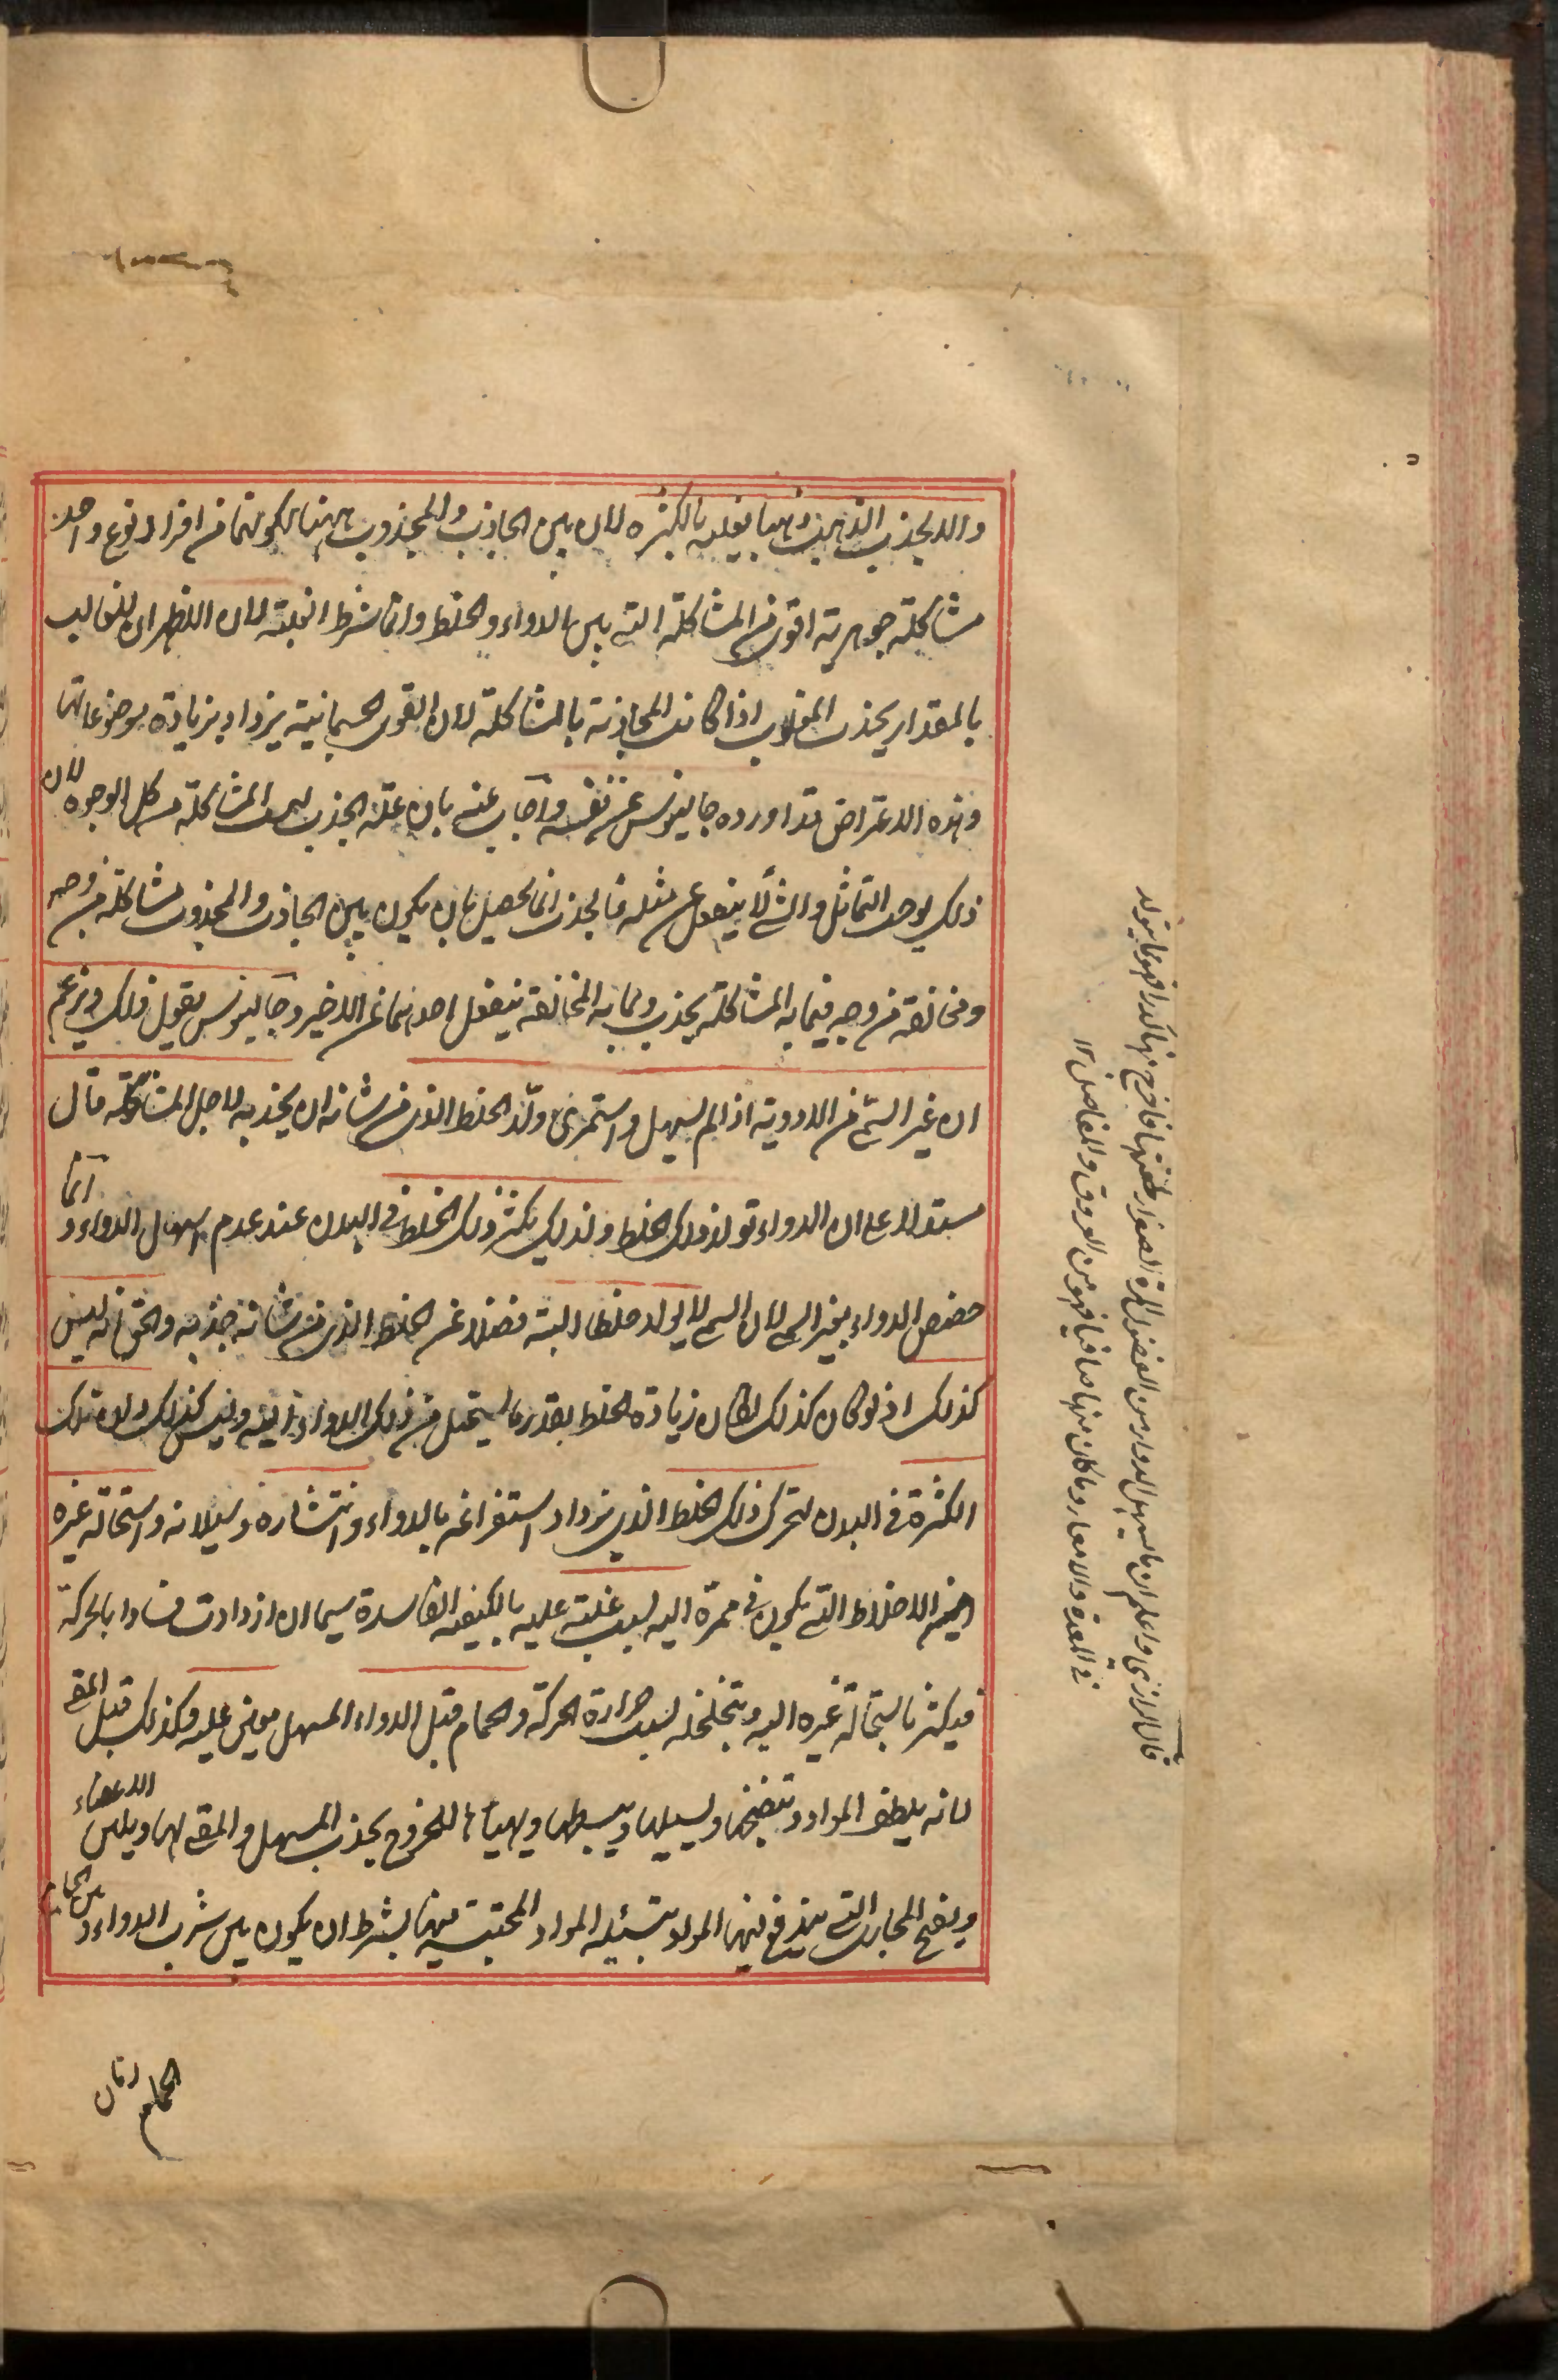 والا لجذب الذهب ذهبا يغلبه بالكثرة لان بين الجاذب والمجذوب ههنا لكونهما من افراد نوع واحد
مشاكلة جوهرية اقوى من المشاكلة التي بين الدواء والخلط وانما شرط الغلبة لان الاظهر ان الغالب
بالمقدار يجذب المغلوب اذا كانت المجاذبة بالمشاكلة لان القوى الجسمانية يزداد بزيادة موضوعاتها
وهذه الاعتراض قد اورده جالينوس عن نفسه واجاب عنه بان علة الجذب ليست المشاكلة من كل الوجوه لان
ذلك يوجب التماثل والشئ لا ينفعل عن مثله فالجذب انما يحصل بان يكون بين الجاذب والمجذوب مشاكلة من وجه
ومخالفة من وجه فبما به المشاكلة يجذب وبما به المخالفة ينفعل احدهما عن الاخير وجالينوس يقول ذلك ويزعم
ان غير السمي من الادوية اذا لم يسهل واستمرئ ولّد الخلط الذي من شانه ان يجذبه لاجل المشاكلة قال
مستدلا على ان الدواء تولد ذلك الخلط ولذلك يكثر ذلك الخلط في البدن عند عدم اسهال الدواء و انما
خصص الدواء بغير السمي لان السم لا يولد خلطا البتة فضلا عن الخلط الذي من شانه جذبه والحق انه ليس
كذلك اذ لو كان كذلك لكان زيادة الخلط بقدر ما يستحيل من ذلك الدواء اليه وليس كذلك ولان تلك
الكثرة في البدن لتحرك ذلك الخلط الذي يزداد استفراغه بالدواء وانتشاره وسيلانه واستحالة غيره
اعني الاخلاط التي يكون في ممره اليه بسبب غلبته عليه بالكيفية الفاسدة سيما ان ازدادت فسادا بالحركة
فيكثر باستحالة غيره اليه وتخلخله بسبب حرارة الحركة والحمام قبل الدواء المسهل معين عليه وكذلك قبل المقئ
لانه يلطف المواد وتنضجها ويسيلها ويبسطها ويهيأها للخروج بجذب المسهل والمقئ لها ويلين الاعضاء
ويفتح المجاري التي يندفع فيها المواد بتسييله المواد المحتبسة فيها بشرط ان يكون بين شرب الدواء و بين الحمام
الحمام زمان
قال الرازي واعلم ان ما يسهل الدواء من الفضول المرة الصفراء
في المعدة والامعاء وما كان منها صافيا فهو من العروق والمفاصل ١٢